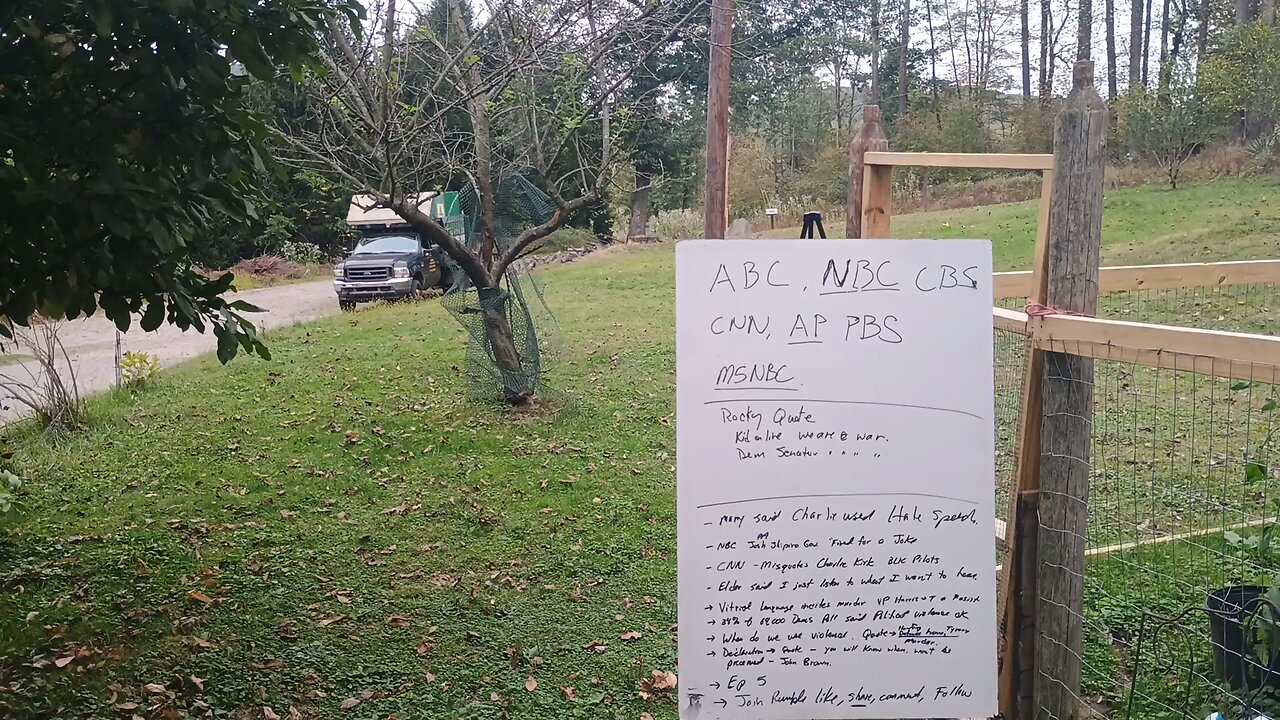 ABC, NBC CBS
CNN, AP PBS
MSNBC
Rocky Quote
we are @ war.
Dem Senator " " " "
- Mary said Charlie used Hate Speech.
- NBC Josh Shipiro Gov Fired for a Joke
PA
- CNN - Misquotes Charlie Kirk BLK Pilots
- Elder said I just listen to what I want to hear.
→ Vitriol Language incites murder VP Harris → T a Facist
→ of Dems All said Political violence ok
→ When do we use violence. Quote →
murder.
→ Declaration → Quote - you will know when. won't be
- John Brown.
→ Ep 5
→ Join Rumble like, share, comment, Follow